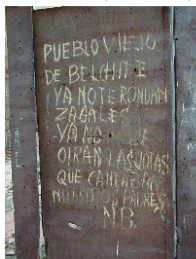 PUEBLO VIEJO
DE BELCHITE
YA NO TE RONDAN
ZAGALES
YA NO SE
OIRAN LAS JOTAS
QUE CANTABAN
NUESTROS PADRES
N.B.